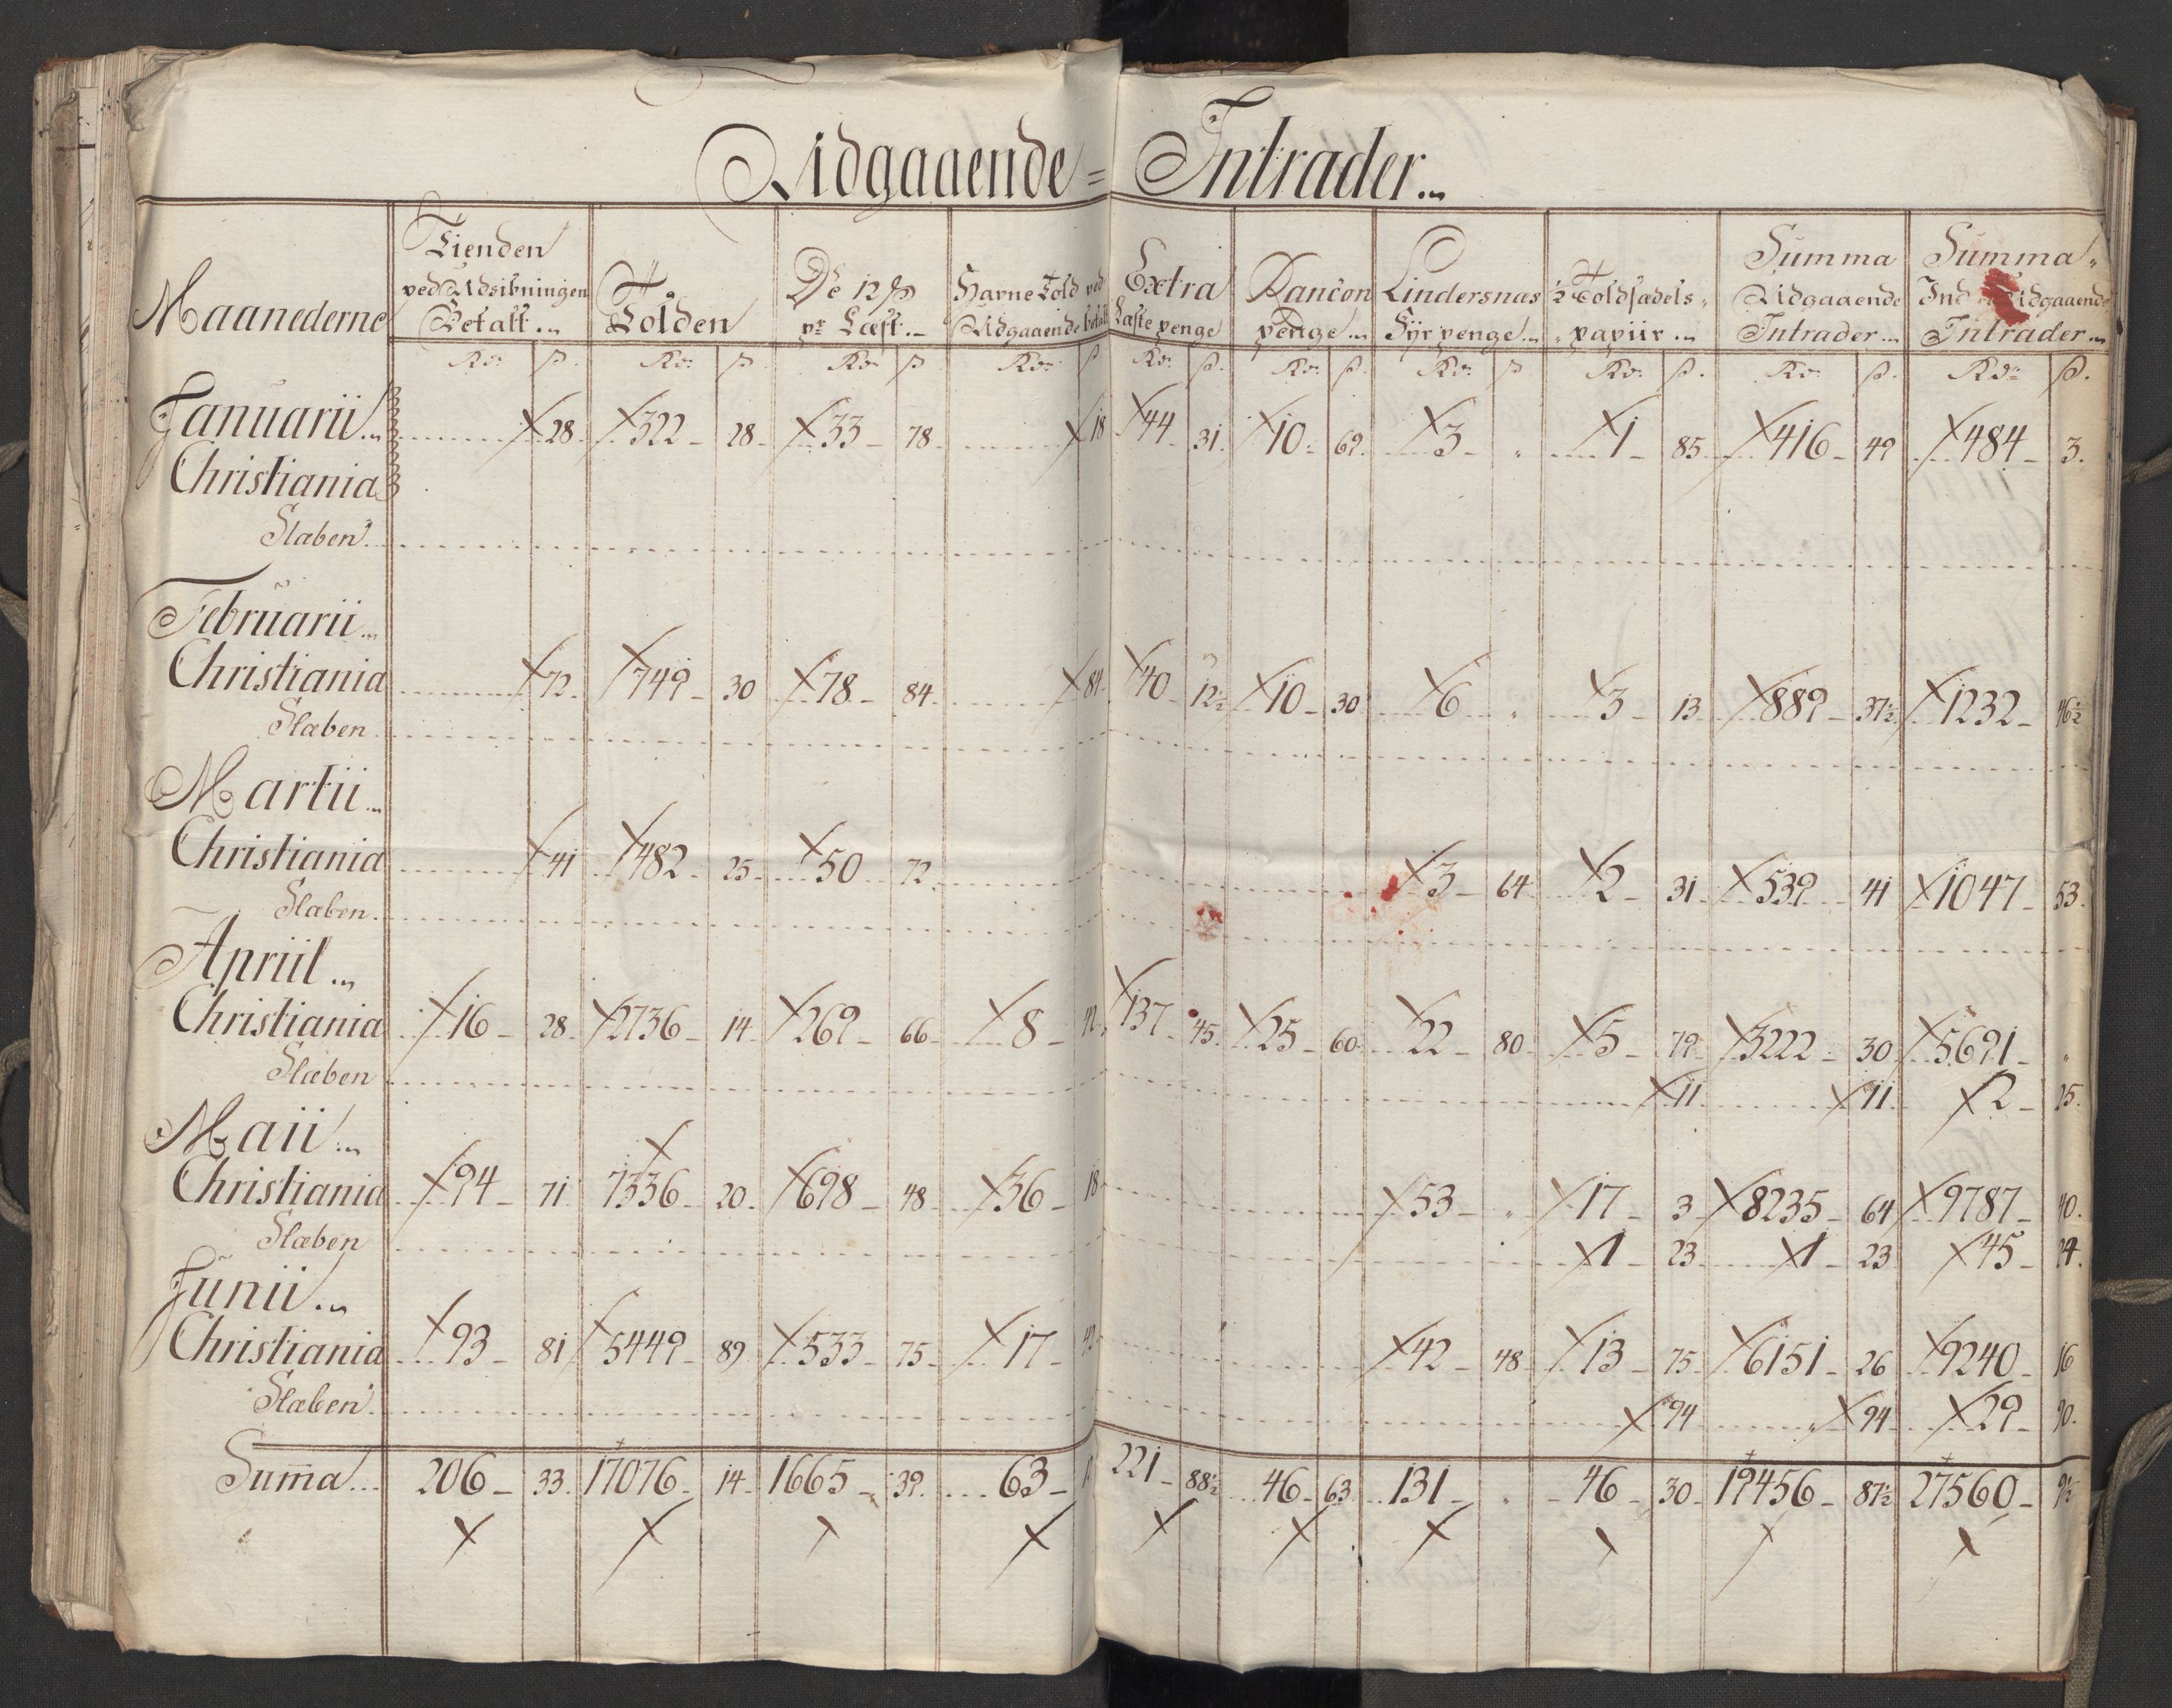 Udgaaende= Intrader...
Maanederne | Tienden ved Udskibningen Betalt... | Tolden | De 12 ß pr Læst... | Havne Told ved Udgaaende betalt | Extra Læste penge | Rancon penge... | Lindersnæs Fyr penge... | ½ Toldsædels papiir... | Summa Udgaaende Intrader... | Summa Ind Udgaaende Intrader...
Rdr ß | Rdr ß | Rdr ß | Rdr ß | Rdr ß | Rdr ß | Rdr ß | Rdr ß | Rdr ß | Rdr ß
Januarii...
28 | 322 28 | 33 78 | 18 | 44 31 | 10 69 | 3 " | 1 85 | 416 49 | 484 3
Christiania
Slæben
Februarii...
Christiania | 72 | 749 30 | 78 84 | 84 | 40 12½ | 10 30 | 6 " | 3 13 | 889 37½ | 1232 46½
Slæben
Martii...
Christiania | 41 | 482 25 | 50 72 | 3 64 | 2 31 | 539 41 | 1047 53
Slæben
Apriil...
Christiania | 16 28 | 2736 14 | 269 66 | 8 | 137 45 | 25 60 | 22 80 | 5 79 | 3222 30 | 5691 "
Slæben | 11 | 11 | 2 25
Maii...
Christiania | 94 71 | 7336 20 | 698 48 | 36 18 | 53 " | 17 3 | 8235 64 | 9787 40
Slæben | 1 23 | 1 23 | 45 24
Junii...
Christiania | 93 81 | 5449 89 | 533 75 | 17 | 42 48 | 13 75 | 6151 26 | 9240 16
Slæben | 94 | 94 | 29 90
Summa... | 206 33 | 17076 14 | 1665 39 | 63 | 221 88½ | 46 63 | 131 " | 46 30 | 19456 87½ | 27560 9½